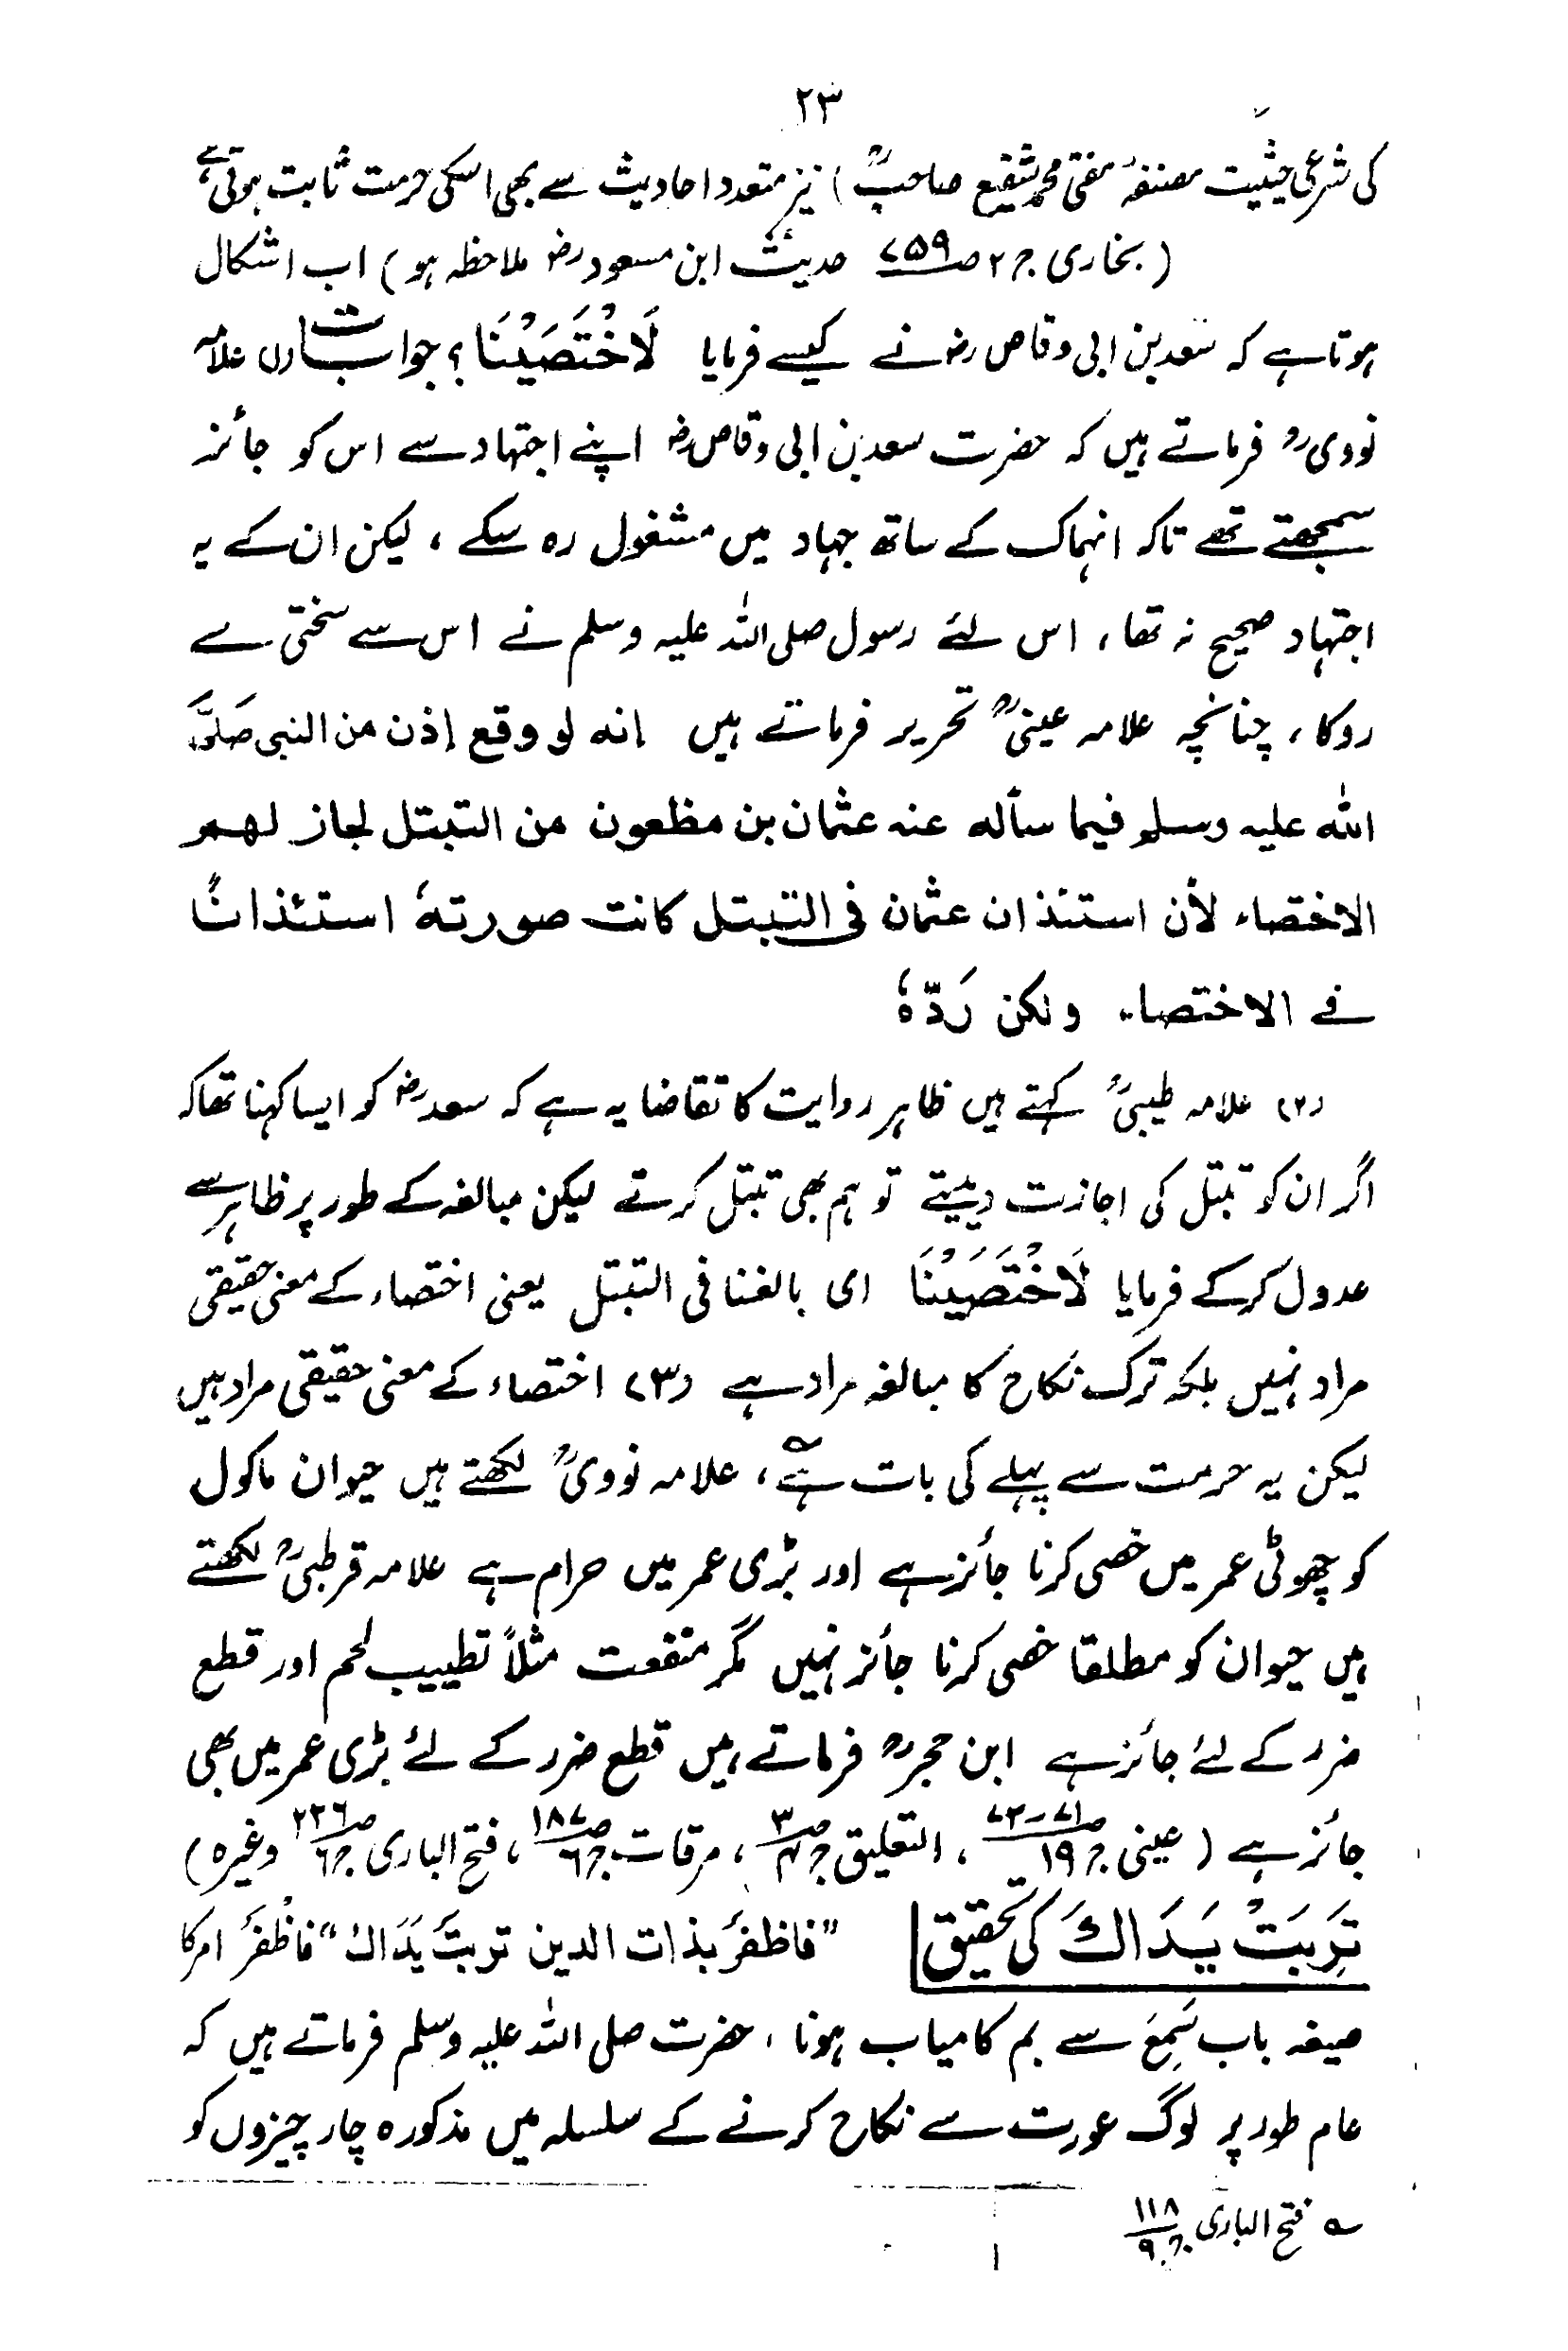 ۲۳
کی شرعی حیثیت مصنفہٗ مفتی محمد شفیع صاحبؒ) نیز متعدد احادیث سے بھی اسکی حرمت ثابت ہوتی ہے،
(بخاری ج۲ ص۷۵۹ حدیث ابن مسعود رض ملاحظہ ہو) اب اشکال
ہوتا ہے کہ سعد بن ابی وقاص رض نے کیسے فرمایا لَاخْتَصَيْنَا؟ جوابات (۱) علامہ
نووی رح فرماتے ہیں کہ حضرت سعد بن ابی وقاص رض اپنے اجتہاد سے اس کو جائز
سمجھتے تھے تاکہ انہماک کے ساتھ جہاد میں مشغول رہ سکے، لیکن ان کے یہ
اجتہاد صحیح نہ تھا، اس لئے رسول صلی اللہ علیہ وسلم نے اس سے سختی سے
روکا، چنانچہ علامہ عینیؒ تحریر فرماتے ہیں انه لو وقع إذن من النبی صَلَّی
الله عليه وسلم فيما سأله عنه عثمان بن مظعون من التبتل لجاز لهم
الاختصاء لأن استئذان عثمان فی التبتل كانت صورتهٗ استئذانًا
فے الاختصاء ولكن رَدّهٗ
(۲) علامہ طیبیؒ کہتے ہیں ظاہر روایت کا تقاضا یہ ہے کہ سعد رض کو ایسا کہنا تھا کہ
اگر ان کو تبتل کی اجازت دیتے تو ہم بھی تبتل کرتے لیکن مبالغہ کے طور پر ظاہر سے
عدول کر کے فرمایا لَاخْتَصَيْنَا ای بالغنا فی التبتل یعنی اختصاء کے معنی حقیقی
مراد نہیں بلکہ ترک نکاح کا مبالغہ مراد ہے (۳) اختصاء کے معنی حقیقی مراد ہیں
لیکن یہ حرمت سے پہلے کی بات ہے ؎، علامہ نوویؒ لکھتے ہیں حیوان ماکول
کو چھوٹی عمر میں خصی کرنا جائز ہے اور بڑی عمر میں حرام ہے علامہ قرطبیؒ لکھتے
ہیں حیوان کو مطلقا خصی کرنا جائز نہیں مگر منفعت مثلاً تطییب لحم اور قطع
ضرر کے لئے جائز ہے ابن حجر رح فرماتے ہیں قطع ضرر کے لئے بڑی عمر میں بھی
جائز ہے (عینی ج۱۹ ص۷۱-۷۲، التعلیق ج۴ ص۳، مرقات ج۶ ص۱۸۷، فتح الباری ج۶ ص۲۲۶ وغیرہ)
تَرِبَتْ يَدَاكَ کی تحقیق "فاظفرْ بذات الدین تربتْ يَدَاك" فاظْفَرْ امر کا
صیغہ باب سَمِعَ سے بم کامیاب ہونا، حضرت صلی اللہ علیہ وسلم فرماتے ہیں کہ
عام طور پر لوگ عورت سے نکاح کرنے کے سلسلہ میں مذکورہ چار چیزوں کو
؎ فتح الباری ج۹ ۱۱۸